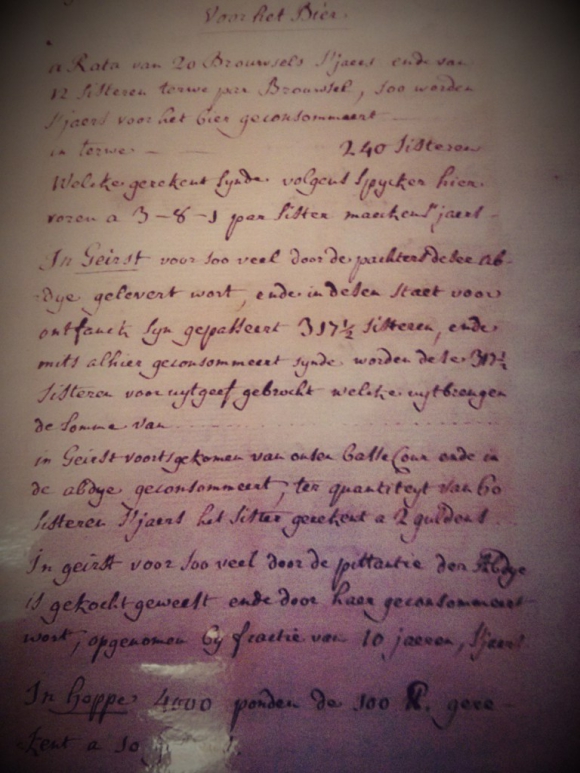 Voor het Bier.
a Rata van 20 Brouwsels s'jaers ende van
12 sisteren terwe per Brouwsel, soo worden
s'jaers voor het bier geconsommeert
in terwe — — 240 sisteren
Welcke gerekent synde volgens spycker hier
voren a 3-8-1 per sister maecken s'jaers -
In Geirst voor soo veel door de pachters deser ab-
dye gelevert wort, ende in desen staet voor
ontfanck syn gepasseert 317½ sisteren, ende
mits alhier geconsommeert synde worden dese 317½
sisteren voor uytgeef gebrocht welcke uytbrengen
de somme van
in Geirst voorts gekomen van onsen basse Cour ende in
de abdye geconsommeert, ter quantiteyt van 60
sisteren s'jaers het sister gerekent a 2 guldens
In geirst voor soo veel door de pittantie der Abdye
is gekocht geweest ende door haer geconsommeert
wort, opgenomen by fractie van 10 jaeren, s'jaers
In hoppe 4000 ponden de 100 lb. gere-
kent a 10